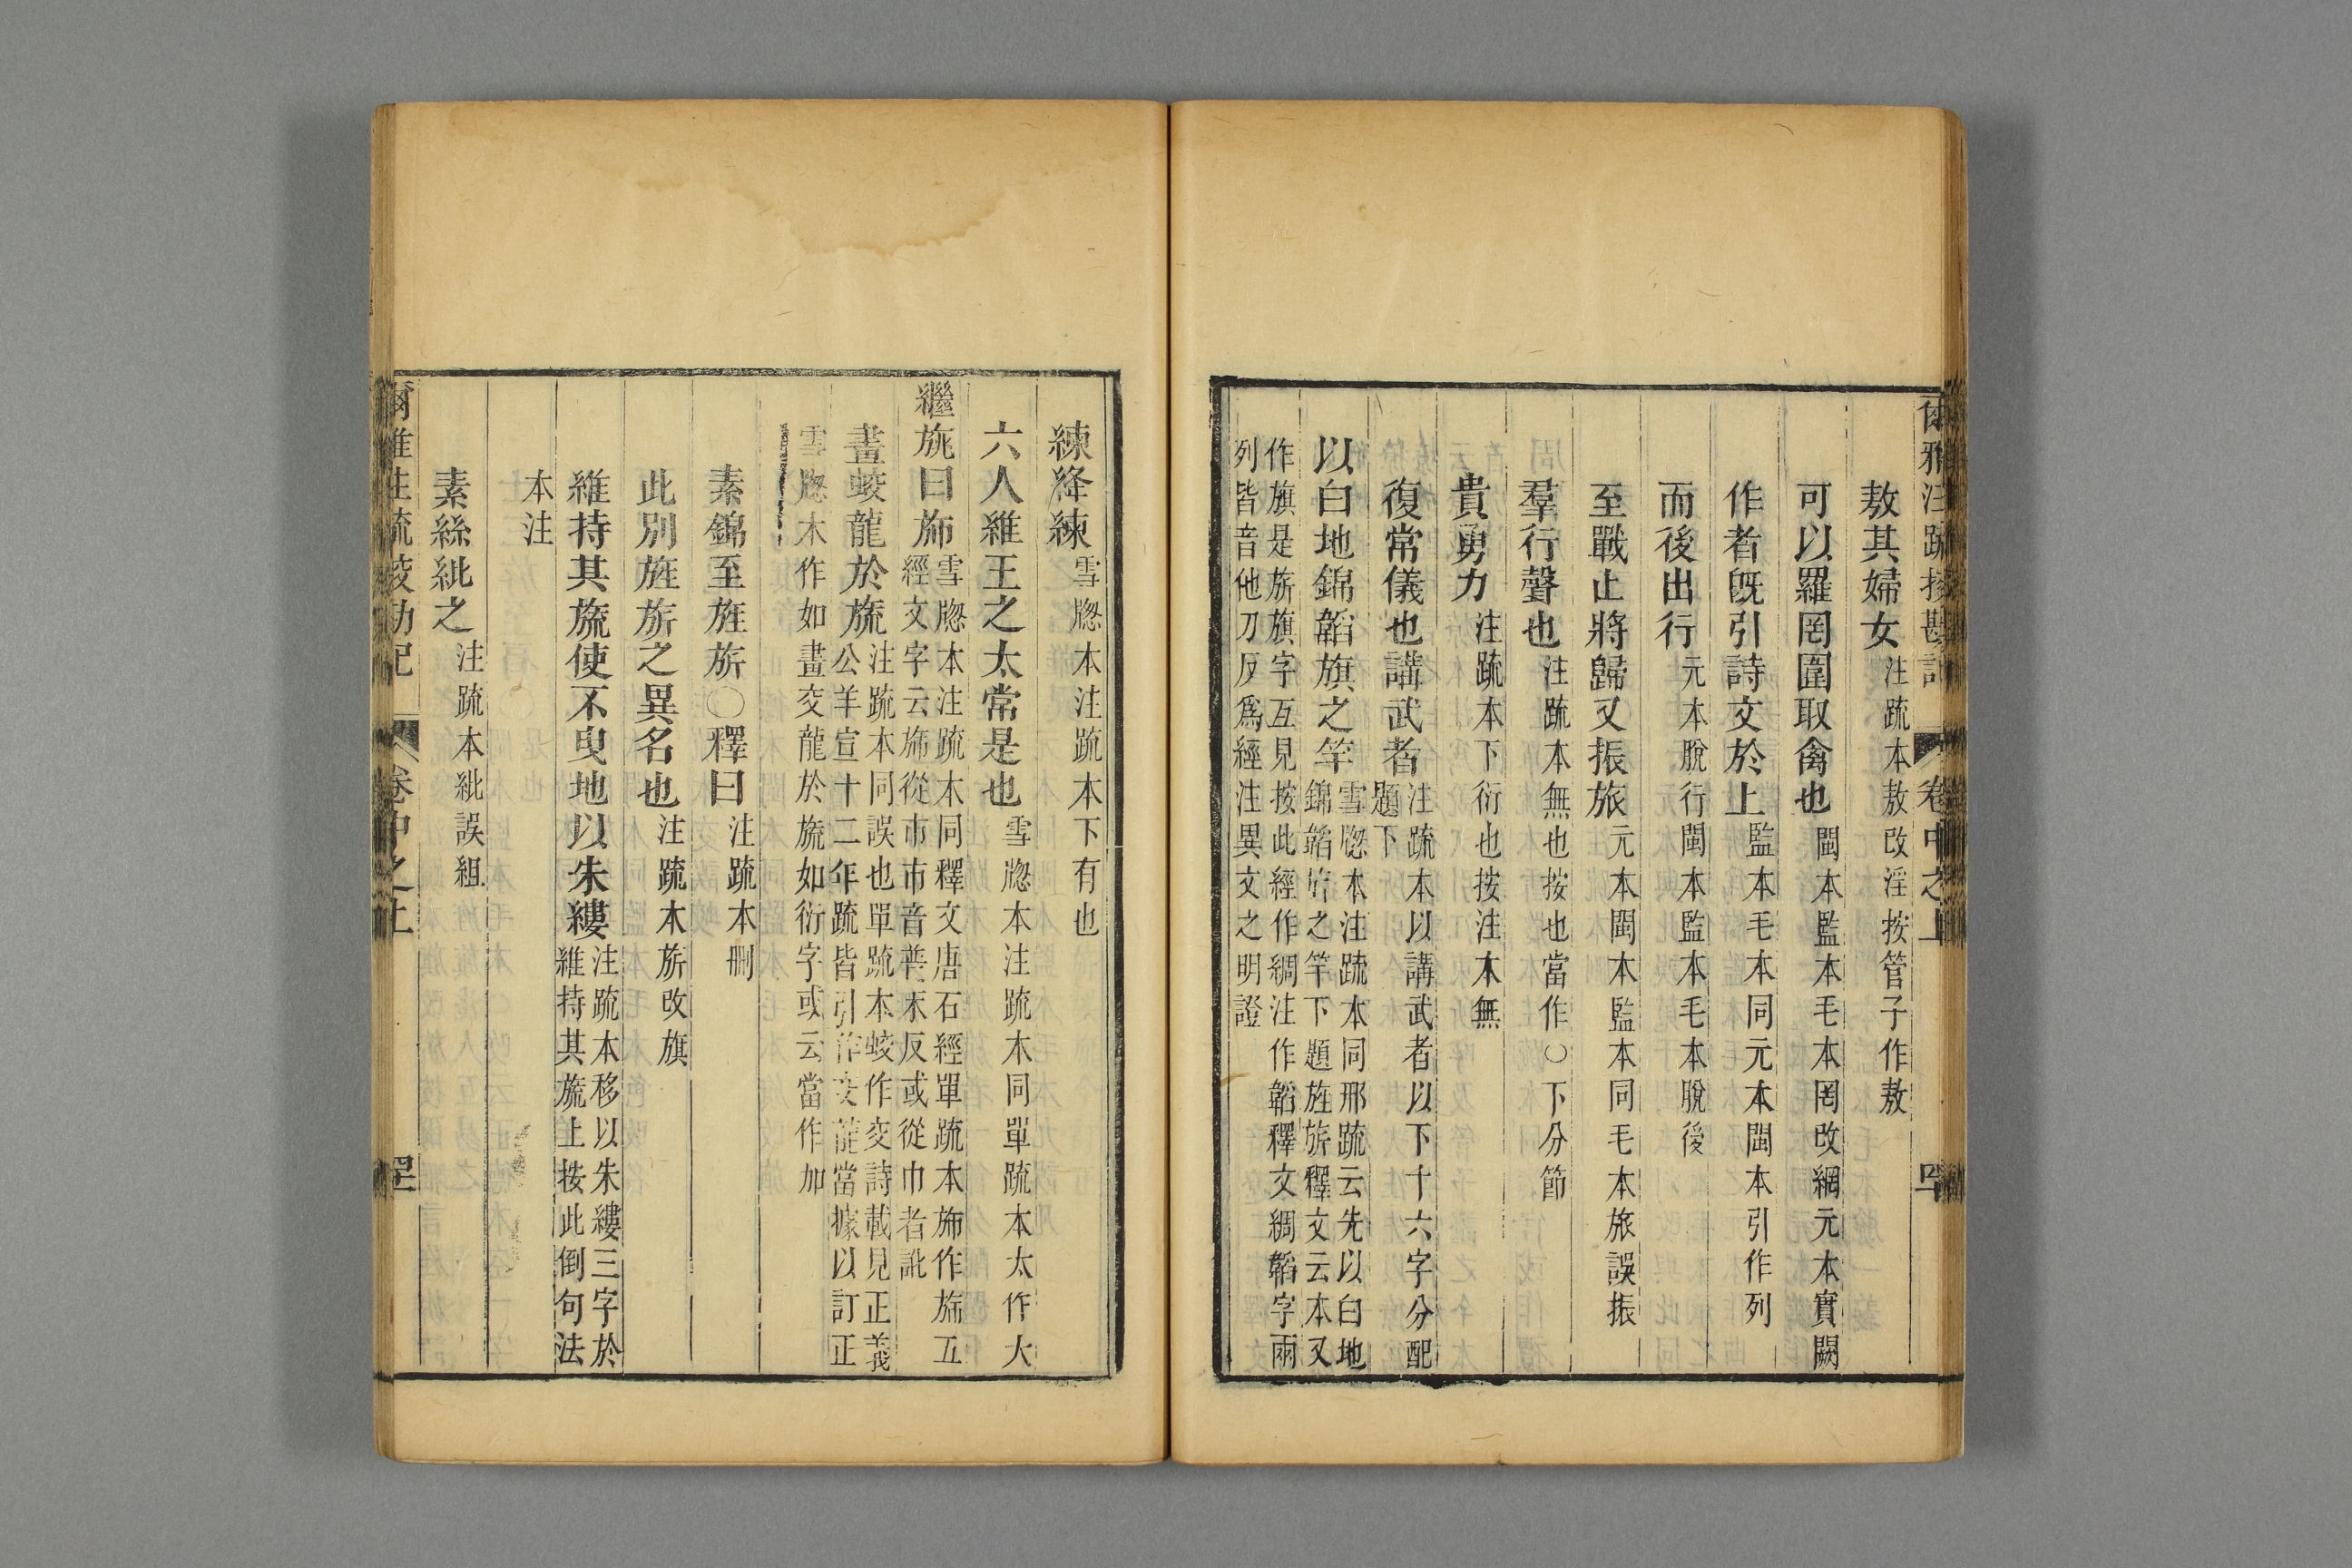 爾雅注疏挍勘記 卷中之上
敖其婦女注疏本敖改淫按管子作敖
可以羅罔圍取禽也閩本監本毛本罔改網元本實闕
作者旣引詩文於上監本毛本同元本閩本引作列
而後出行元本脫行閩本監本毛本脫後
至戰止將歸又振旅元本閩本監本同毛本旅誤振
羣行聲也注疏本無也按也當作○下分節
貴勇力注疏本下衍也按注本無
復常儀也講武者注疏本以講武者以下十六字分配題下
以白地錦韜旗之竿雪牕本注疏本同邢疏云先以白地錦韜旂之竿下題旌旂釋文云本又
作旗是旂旗字互見按此經作綢注作韜釋文綢韜字兩
列皆音他刀反爲經注異文之明證
練絳練雪牕本注疏本下有也
六人維王之太常是也雪牕本注疏本同單疏本太作大
繼旐曰斾雪牕本注疏本同釋文唐石經單疏本斾作旆五經文字云旆從巿巿音普末反或從巾者訛
畫蛟龍於旒注疏本同誤也單疏本蛟作交詩載見正義公羊宣十二年疏皆引作交龍當據以訂正
雪牕本作如畫交龍於旒如衍字或云當作加
素錦至旌旂○釋曰注疏本刪
此別旌旂之異名也注疏本旂改旗
維持其旒使不曳地以朱縷注疏本移以朱縷三字於維持其旒上按此倒句法
本注
素絲紕之注疏本紕誤組
爾雅注疏挍勘記 卷中之上